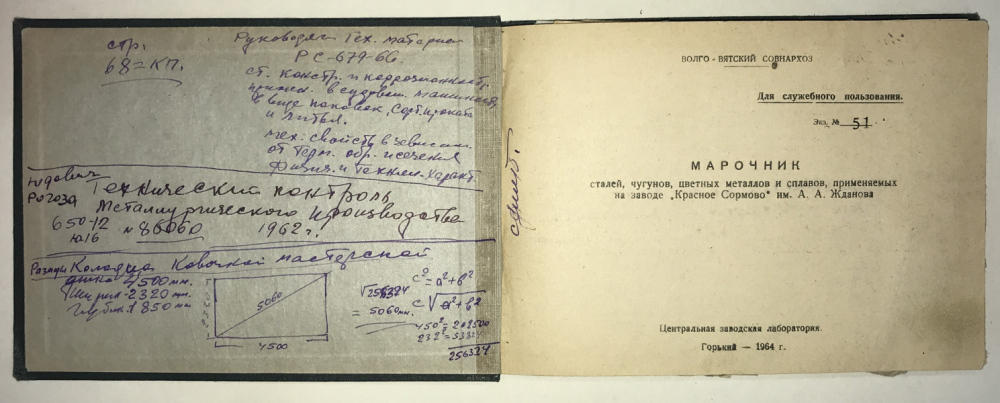 стр.
68=КП.
Руководящ Тех. материал
РС-679-66.
ст. констр. и коррозионност.
примен. в судовом машиност.
в виде поковок, Сорт. проката
и литья.
мех. свойств в зависим.
от Терм. обр. и сечения
Физич. и Технич. Характ.
Юдович
Рогоза
Технический контроль
Металлургического производства
650-12
Ю16
№ 86060
1962 г.
Размеры Колодца Ковочной мастерской
длина 4500 мм.
Ширин-2320 мм.
глубин. 1850 мм
5060
2320
4500
√256324
= 5060 мм.
c² = a²+b²
c √a²+b²
450² = 202500
232² = 53824
256324
ВОЛГО-ВЯТСКИЙ СОВНАРХОЗ
Для служебного пользования.
Экз. № 51
МАРОЧНИК
сталей, чугунов, цветных металлов и сплавов, применяемых
на заводе „Красное Сормово" им. А. А. Жданова
Центральная заводская лаборатория.
Горький — 1964 г.